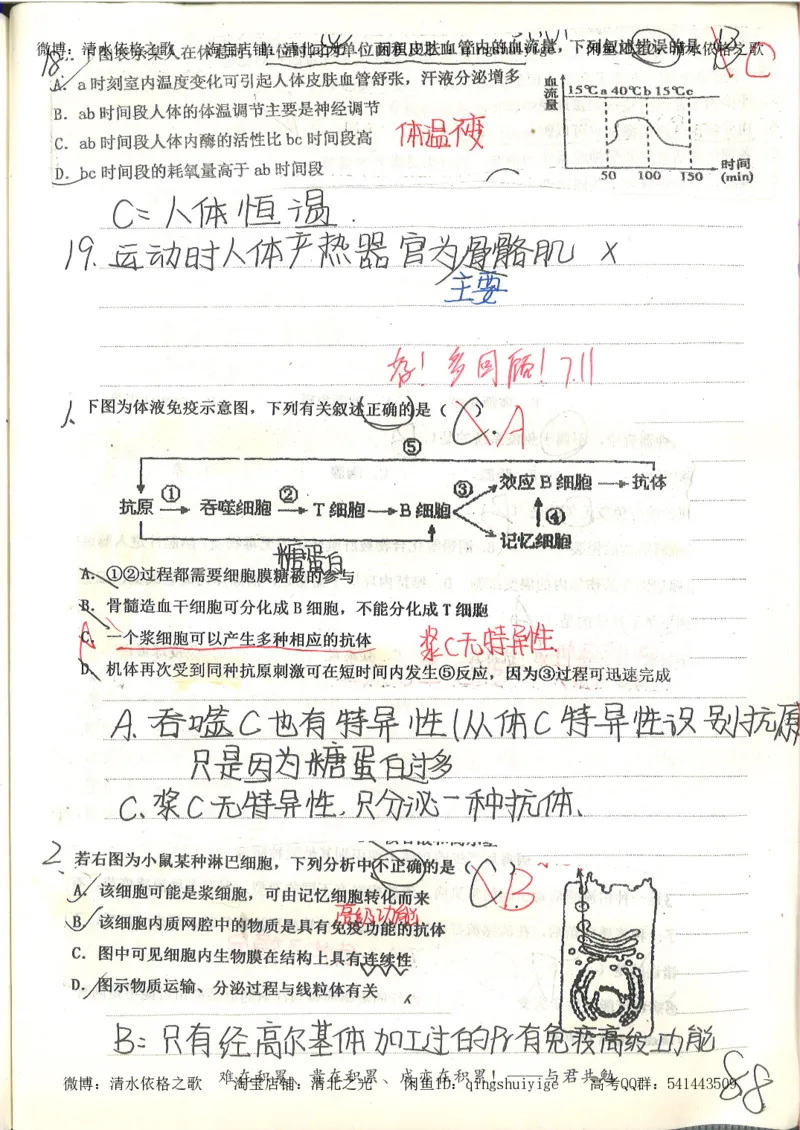 微博：清水依格之歌 淘宝店铺：清北之光 闲鱼ID：qingshuiyige 清水依格之歌
18. 下图表示某人在体息时 单位时间内单位面积皮肤血管内的血流量，下列叙述错误的是 B C
A．a时刻室内温度变化可引起人体皮肤血管舒张，汗液分泌增多
B．ab时间段人体的体温调节主要是神经调节
C．ab时间段人体内酶的活性比bc时间段高 体温不变
D．bc时间段的耗氧量高于ab时间段
血流量
15℃ a 40℃ b 15℃ c
50 100 150
时间(min)
C=人体恒温.
19. 运动时人体产热器官为骨骼肌 ×
主要
好！多回顾！7.11
1、下图为体液免疫示意图，下列有关叙述正确的是（ ） A
⑤
抗原 ① 吞噬细胞 ② T细胞 B细胞 ③ 效应B细胞 抗体
④
记忆细胞
糖蛋白
A．①②过程都需要细胞膜糖被的参与
B．骨髓造血干细胞可分化成B细胞，不能分化成T细胞
C．一个浆细胞可以产生多种相应的抗体 浆C无特异性.
D．机体再次受到同种抗原刺激可在短时间内发生⑤反应，因为③过程可迅速完成
A. 吞噬C也有特异性(从体C特异性识别抗原
只是因为糖蛋白过多
C、浆C无特异性，只分泌一种抗体、
2、若右图为小鼠某种淋巴细胞，下列分析中不正确的是（ ） B
A．该细胞可能是浆细胞，可由记忆细胞转化而来
高级功能
B．该细胞内质网腔中的物质是具有免疫功能的抗体
C．图中可见细胞内生物膜在结构上具有连续性
D．图示物质运输、分泌过程与线粒体有关
B=只有经高尔基体加工过的所有免疫高级功能
难在积累、贵在积累、成亦在积累！——与君共勉
微博：清水依格之歌 淘宝店铺：清北之光 闲鱼ID：qingshuiyige 高考QQ群：541443509
88